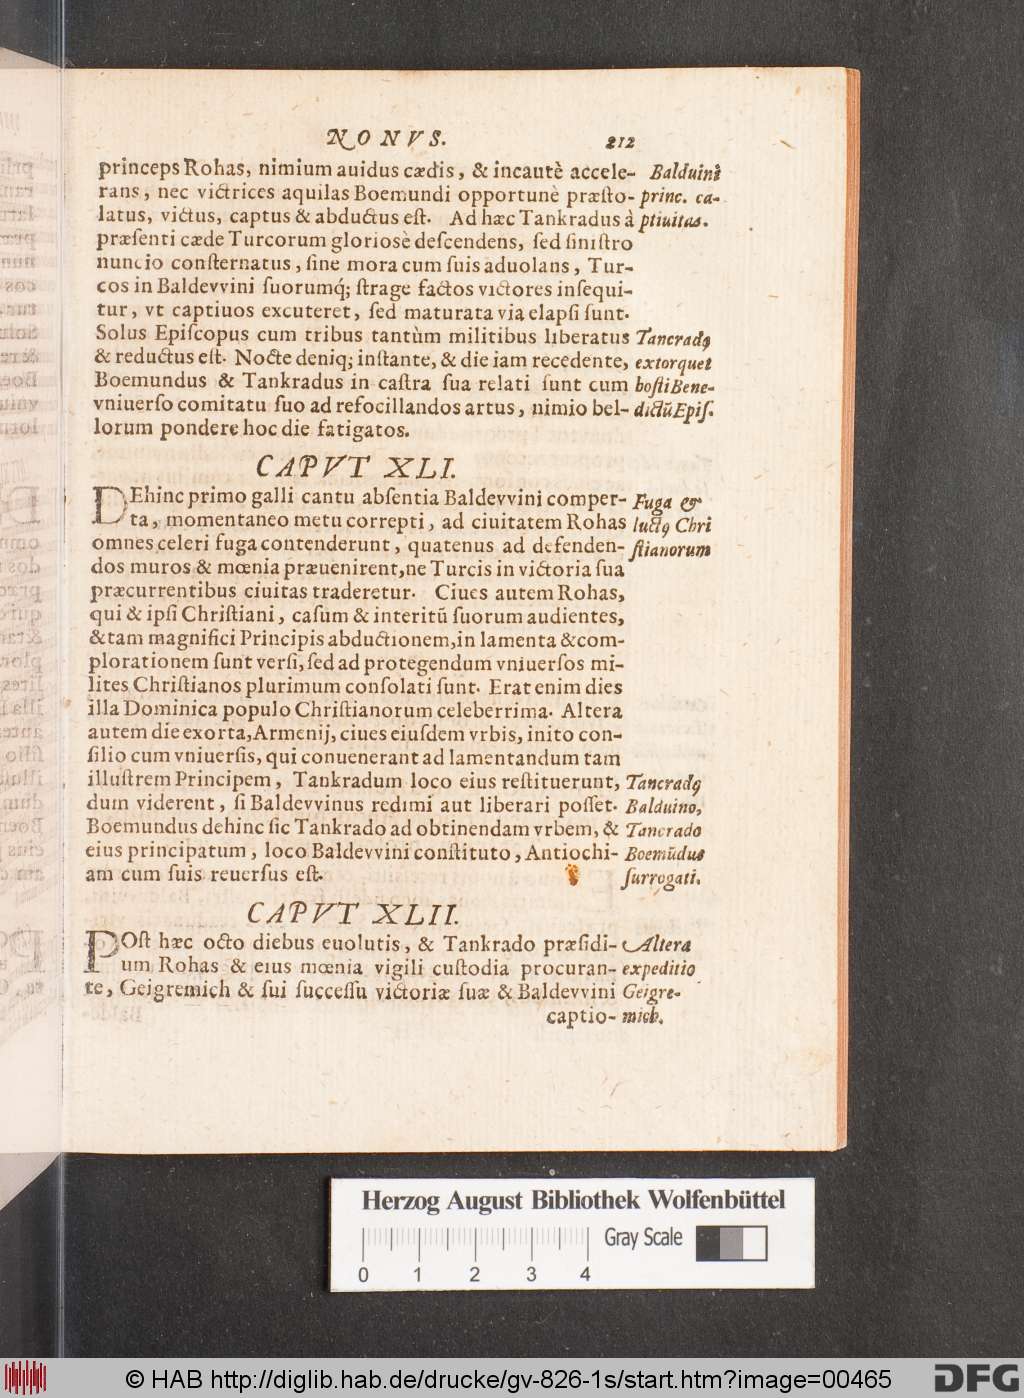 NONVS. 212
princeps Rohas, nimium auidus cædis, & incautè accele- Balduini
rans, nec victrices aquilas Boemundi opportunè præsto- princ. ca-
latus, victus, captus & abductus est. Ad hæc Tankradus à ptiuitas.
præsenti cæde Turcorum gloriosè descendens, sed sinistro
nuncio consternatus, sine mora cum suis aduolans, Tur-
cos in Baldevvini suorumq́; strage factos victores insequi-
tur, vt captiuos excuteret, sed maturata via elapsi sunt.
Solus Episcopus cum tribus tantùm militibus liberatus Tancradꝰ
& reductus est. Nocte deniq; instante, & die iam recedente, extorquet
Boemundus & Tankradus in castra sua relati sunt cum hosti Bene-
vniuerso comitatu suo ad refocillandos artus, nimio bel- dictũ Epis.
lorum pondere hoc die fatigatos.
CAPVT XLI.
DEhinc primo galli cantu absentia Baldevvini comper- Fuga &
ta, momentaneo metu correpti, ad ciuitatem Rohas luctꝰ Chri
omnes celeri fuga contenderunt, quatenus ad defenden- stianorum
dos muros & mœnia præuenirent, ne Turcis in victoria sua
præcurrentibus ciuitas traderetur. Ciues autem Rohas,
qui & ipsi Christiani, casum & interitũ suorum audientes,
& tam magnifici Principis abductionem, in lamenta & com-
plorationem sunt versi, sed ad protegendum vniuersos mi-
lites Christianos plurimum consolati sunt. Erat enim dies
illa Dominica populo Christianorum celeberrima. Altera
autem die exorta, Armenij, ciues eiusdem vrbis, inito con-
silio cum vniuersis, qui conuenerant ad lamentandum tam
illustrem Principem, Tankradum loco eius restituerunt, Tancradꝰ
dum viderent, si Baldevvinus redimi aut liberari posset. Balduino,
Boemundus dehinc sic Tankrado ad obtinendam vrbem, & Tancrado
eius principatum, loco Baldevvini constituto, Antiochi- Boemũdus
am cum suis reuersus est. surrogati.
CAPVT XLII.
POst hæc octo diebus euolutis, & Tankrado præsidi- Altera
um Rohas & eius mœnia vigili custodia procuran- expeditio
te, Geigremich & sui successu victoriæ suæ & Baldevvini Geigre-
captio- mich.
Herzog August Bibliothek Wolfenbüttel
Gray Scale
0 1 2 3 4
© HAB http://diglib.hab.de/drucke/gv-826-1s/start.htm?image=00465
DFG